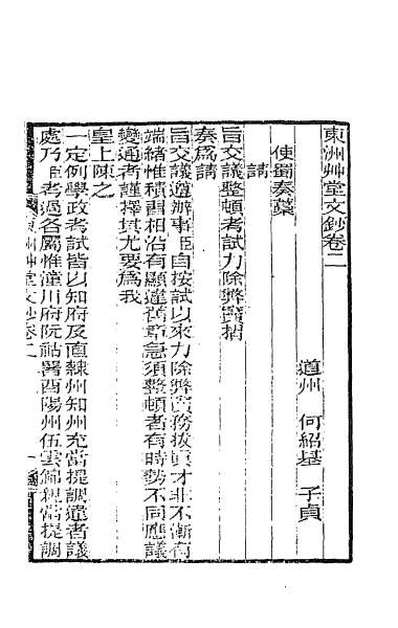 東洲艸堂文鈔卷二
道州　何紹基　子貞
使蜀奏藁
請
旨交議整頓考試力除弊竇摺
奏爲請
旨交議遵辦事臣自按試以來力除弊竇務拔眞才非不漸有
端緒惟積習相沿有顯違舊章急須整頓者有時勢不同應議
變通者謹擇其尤要爲我
皇上陳之
一定例學政考試皆以知府及直隸州知州充當提調違者議
處乃臣考過各屬惟潼川府阮祜署酉陽州伍雲鄉親當提調
東洲艸堂文鈔卷二
一